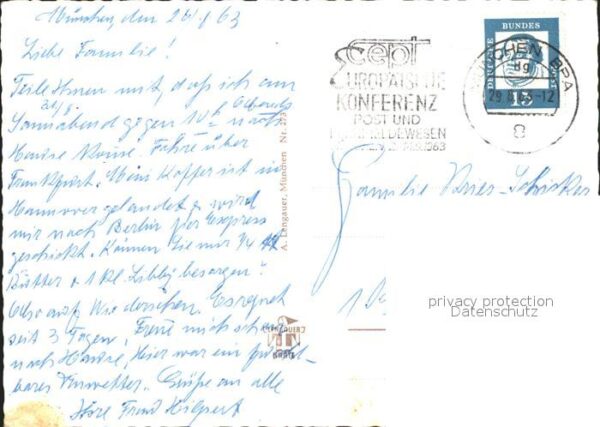 München, den 28/8 63
Liebe Familie!
Teile Ihnen mit, daß ich am
31/8.
Sonnabend gegen 10 h Abends nach
Hause komme. Fahre über
Frankfurt. Mein Koffer ist in
Hannover gelandet u. wird
mir nach Berlin per Express
geschickt. Können Sie mir 1/4
Butter u. 1 kl. Libby besorgen?
Also auf Wiedersehen. Es regnet
seit 3 Tagen. Freue mich schon
nach Hause, hier war ein furcht-
bares Unwetter. Grüße an alle
Ihre Frau Hilpert
A. Lengauer, München Nr.
cept
EUROPÄISCHE
KONFERENZ
POST UND
FERNMELDEWESEN
1963
MÜNCHEN BPA
dg
29.8.63-12
8
DEUTSCHE BUNDESPOST
15
Familie
1
LENGAUER
KARTE
privacy protection
Datenschutz